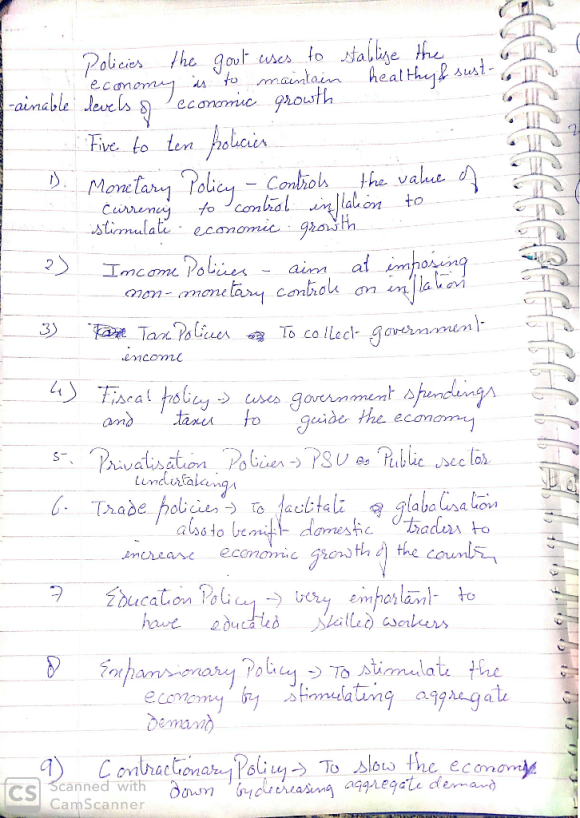 Policies the govt uses to stablise the
economy is to maintain healthy & sust-
-ainable levels of economic growth
Five to ten policies
1). Monetary Policy - Controls the value of
currency to control inflation to
stimulate economic growth
2) Income Policies - aim at imposing
non-monetary controls on inflation
3) Tax Policies To collect government
income
4) Fiscal policy → uses government spendings
and taxes to guide the economy
5-. Privatisation Policies → PSU Public sector
undertakings
6. Trade policies → To facilitate globalisation
also to benifit domestic traders to
increase economic growth of the country
7 Education Policy → very important to
have educated skilled workers
8 Expansionary Policy → To stimulate the
economy by stimulating aggregate
demand
9) Contractionary Policy → To slow the economy
down by decreasing aggregate demand
CS Scanned with
CamScanner